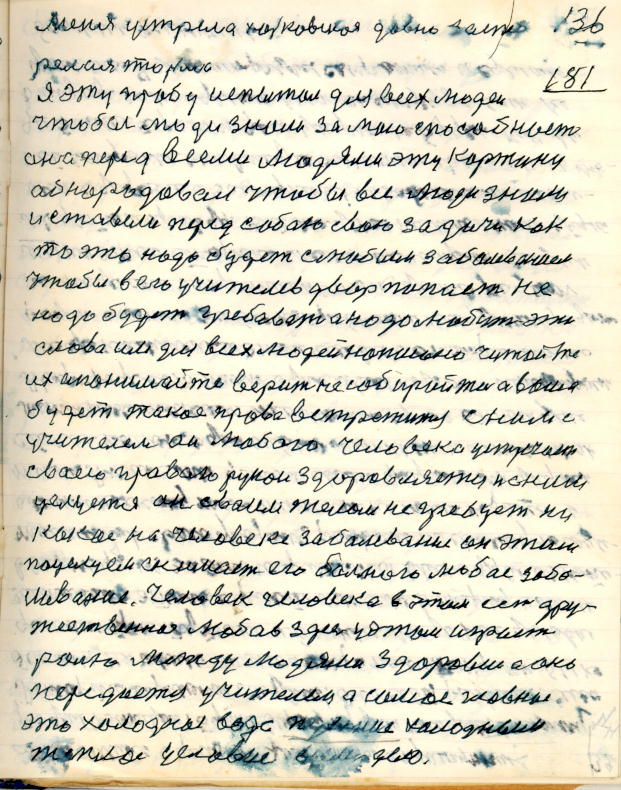 меня устрела харковская давно застре 136
релая
181
Я эту пробу испытал для всех людей
чтобы люди знали за мою способност
она перед всеми людями эту картину
абнародовал чтобы все люди знали
и ставели перед собаю свою задачи как
то это надо будет с любым заболеванием
чтобы в его учителев двор попаст не
надо будет гребават а надо любит эти
слова или для всех людей написано читайте
их и понимайте верит не собирайтес а вам
будет такое права встретитця с ним с
учителем он любого человека устречаит
сваею праваю рукой здоровляетця и с ним
целуетця он сваем телом не гребует ни
какое на человеке забалевание он этим
поцелуем снимает его болного любое забо-
левание. Человек человека в этом ест дру-
жественная любов здес у этом играет
ролю между людями здоровие оно
передаетця учителем а самое главное
это холодная вода купание холодным
теплое условие